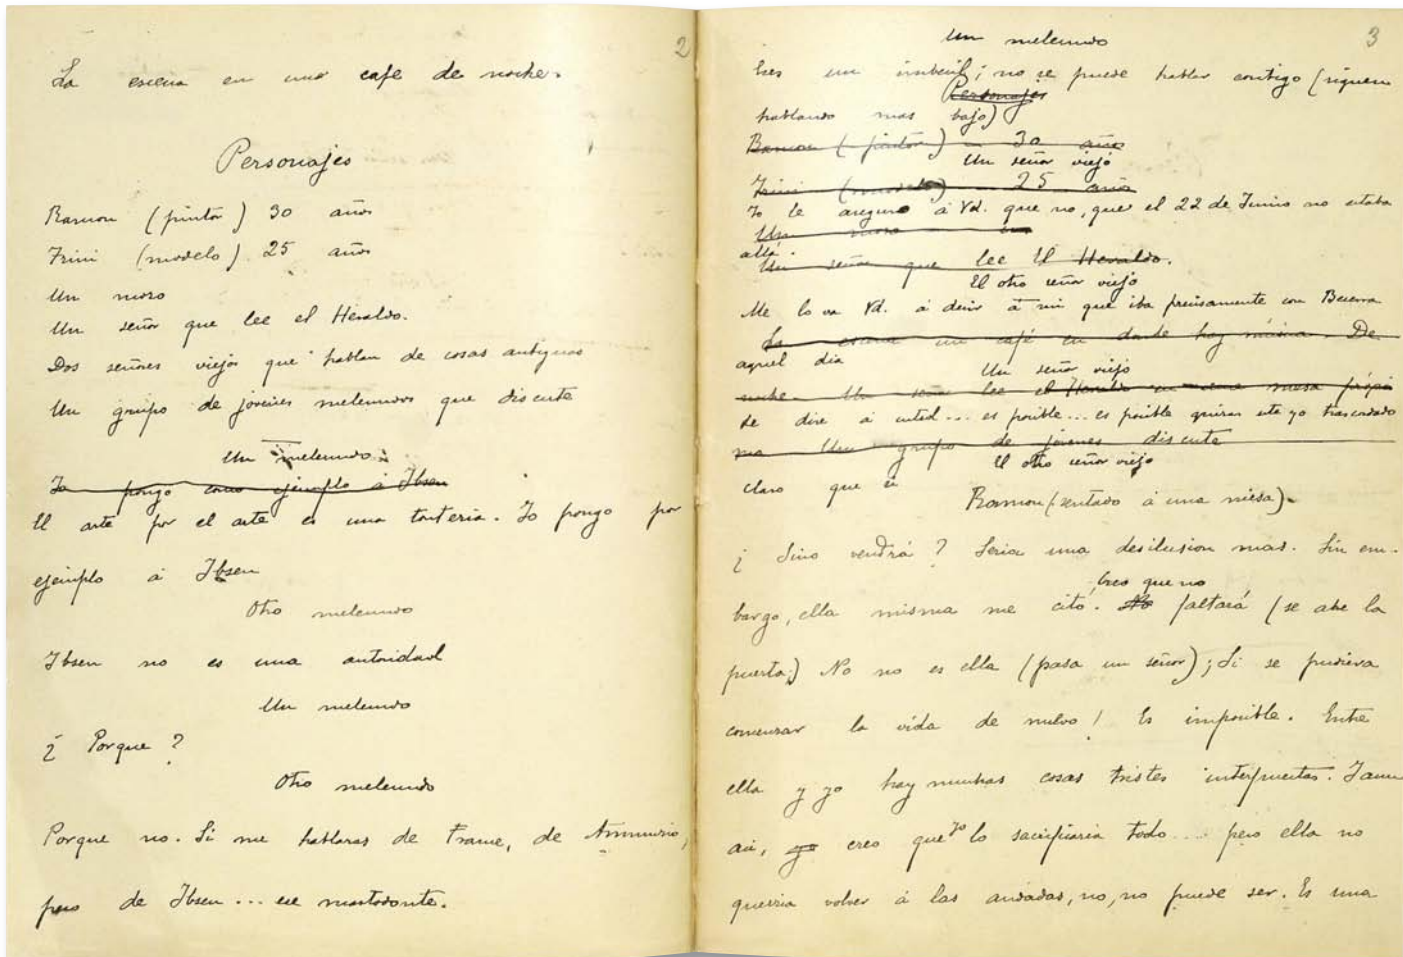 2
La escena en una cafe de noche.
Personajes
Ramon (pintor) 30 años
Trini (modelo) 25 años
Un mozo
Un señor que lee el Heraldo.
Dos señores viejos que hablan de cosas antiguas
Un grupo de jóvenes melenudos que discute
Un melenudo
Yo pongo como ejemplo á Ibsen
El arte por el arte es una tonteria. Yo pongo por
ejemplo á Ibsen
Otro melenudo
Ibsen no es una autoridad
Un melenudo
¿ Porque ?
Otro melenudo
Porque no. Si me hablaras de France, de Annunzio,
pero de Ibsen ... ese mastodonte.
3
Un melenudo
Eres un imbécil; no se puede hablar contigo (siguen
Personajes
hablando mas bajo)
Ramon (pintor) - 30 años
Un señor viejo
Trini (modelo) - 25 años
Yo le aseguro á Vd. que no, que el 22 de Junio no estaba
Un mozo
allá.
Un señor que lee El Heraldo.
El otro señor viejo
Me lo va Vd. á decir á mi que iba precisamente con Becerra
La escena un café en donde hay música. De
aquel dia
Un señor viejo
noche. Un señor lee el Heraldo en una mesa próxi
Le dire á usted... es posible... es posible
ma Un grupo de jóvenes discute
El otro señor viejo
claro que si
Ramon (sentado á una mesa).
¿ Sino vendrá ? Seria una desilusion mas. Sin em-
creo que no
bargo, ella misma me citó. No faltará (se abe la
puerta;) No no es ella (pasa un señor); Si se pudiera
comenzar la vida de nuevo ! Es imposible. Entre
ella y yo hay muchas cosas tristes interpuestas. Y aun
asi, yo creo que yo lo sacrificaria todo .... pero ella no
querria volver á las andadas, no, no puede ser. Es una